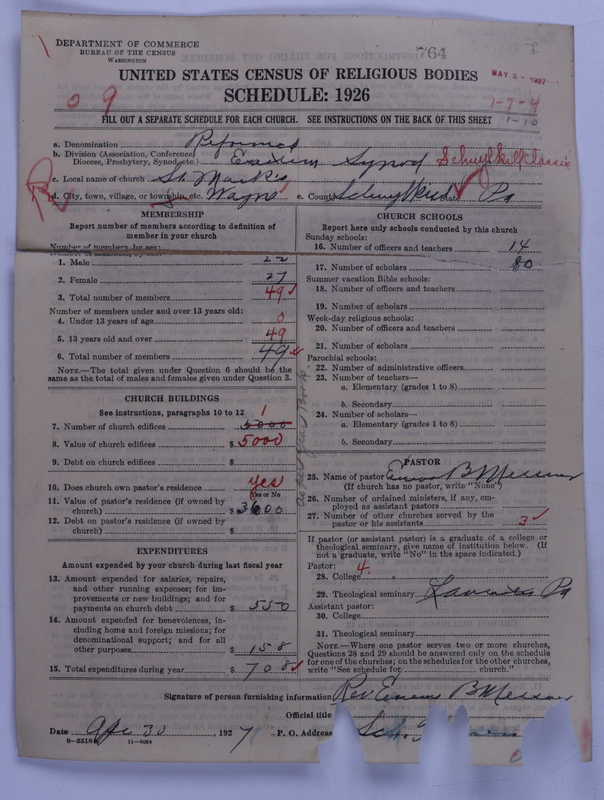 DEPARTMENT OF COMMERCE
BUREAU OF THE CENSUS
WASHINGTON
764
MAY 3 - 1927
UNITED STATES CENSUS OF RELIGIOUS BODIES
SCHEDULE: 1926
0 9
1-7-4
1-10
FILL OUT A SEPARATE SCHEDULE FOR EACH CHURCH. SEE INSTRUCTIONS ON THE BACK OF THIS SHEET
a. Denomination Reformed
b. Division (Association, Conference, Diocese, Presbytery, Synod, etc.) Eastern Synod Schuylkill Classis
c. Local name of church St Mark's
d. City, town, village, or township, etc. Wayne e. County Schuylkill State Pa
MEMBERSHIP
Report number of members according to definition of member in your church
Number of members by sex:
1. Male 22
2. Female 27
3. Total number of members 49
Number of members under and over 13 years old:
4. Under 13 years of age 0
5. 13 years old and over 49
6. Total number of members 49
NOTE.—The total given under Question 6 should be the same as the total of males and females given under Question 3.
CHURCH BUILDINGS
See instructions, paragraphs 10 to 12
7. Number of church edifices 5000 1
8. Value of church edifices $ 5000
9. Debt on church edifices $
10. Does church own pastor's residence yes
Yes or No
11. Value of pastor's residence (if owned by church) $ 3600
12. Debt on pastor's residence (if owned by church) $
EXPENDITURES
Amount expended by your church during last fiscal year
13. Amount expended for salaries, repairs, and other running expenses; for improvements or new buildings; and for payments on church debt $ 550
14. Amount expended for benevolences, including home and foreign missions; for denominational support; and for all other purposes $ 158
15. Total expenditures during year $ 708
CHURCH SCHOOLS
Report here only schools conducted by this church
Sunday schools:
16. Number of officers and teachers 14
17. Number of scholars 80
Summer vacation Bible schools:
18. Number of officers and teachers
19. Number of scholars
Week-day religious schools:
20. Number of officers and teachers
21. Number of scholars
Parochial schools:
22. Number of administrative officers
23. Number of teachers—
a. Elementary (grades 1 to 8)
b. Secondary
24. Number of scholars—
a. Elementary (grades 1 to 8)
b. Secondary
PASTOR
25. Name of pastor
(If church has no pastor, write "None")
26. Number of ordained ministers, if any, employed as assistant pastors
27. Number of other churches served by the pastor or his assistants 3
If pastor (or assistant pastor) is a graduate of a college or theological seminary, give name of institution below. (If not a graduate, write "No" in the space indicated.)
Pastor: 4.
28. College
29. Theological seminary Lancaster Pa
Assistant pastor:
30. College
31. Theological seminary
NOTE.—Where one pastor serves two or more churches, Questions 28 and 29 should be answered only on the schedule for one of the churches; on the schedules for the other churches, write "See schedule for church."
Signature of person furnishing information Rev
Official title
Date Apr 30, 1927 P. O. Address
8—5518
11—9084